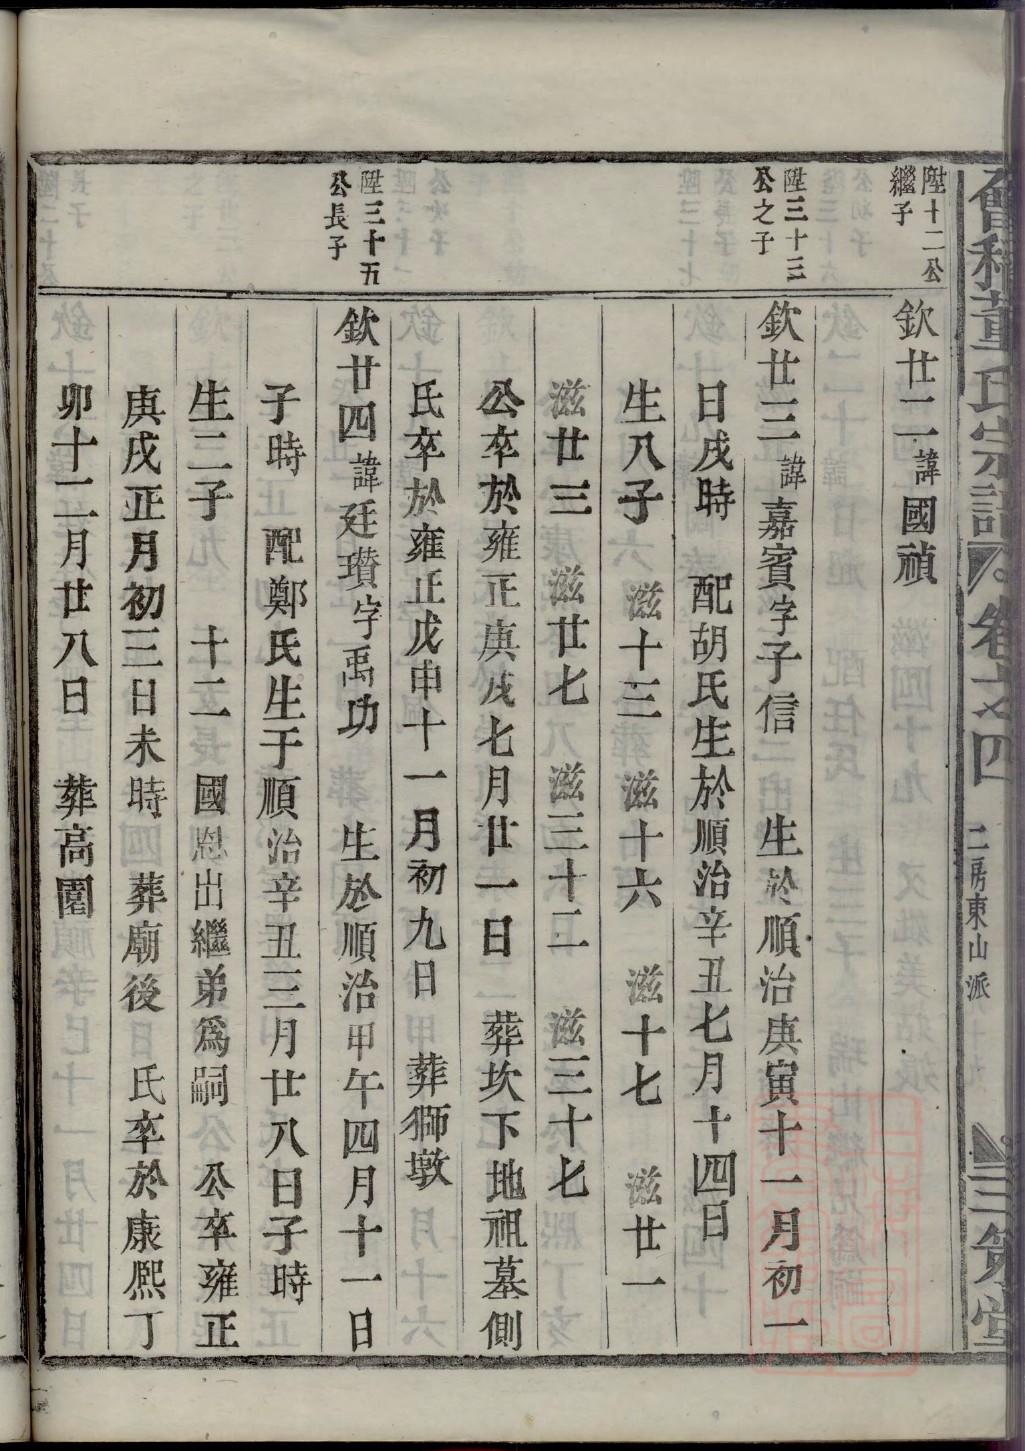 會稽董氏宗譜
卷之四
二房東山派
十九
三策堂
陞十二公
繼子
欽廿二諱國禎
陞三十三
公之子
欽廿三諱嘉賓字子信 生於順治庚寅十一月初一
日戌時 配胡氏生於順治辛丑七月十四日
生八子 滋十三 滋十六 滋十七 滋廿一
滋廿三 滋廿七 滋三十二 滋三十七
公卒於雍正庚戌七月廿一日 葬坎下地祖墓側
氏卒於雍正戊申十一月初九日 葬獅墩
陞三十五
公長子
欽廿四諱廷瓚字禹功 生於順治甲午四月十一日
子時 配鄭氏生于順治辛丑三月廿八日子時
生二子 十二 國恩出繼弟爲嗣 公卒雍正
庚戌正月初三日未時 葬廟後 氏卒於康熙丁
卯十二月廿八日 葬高園